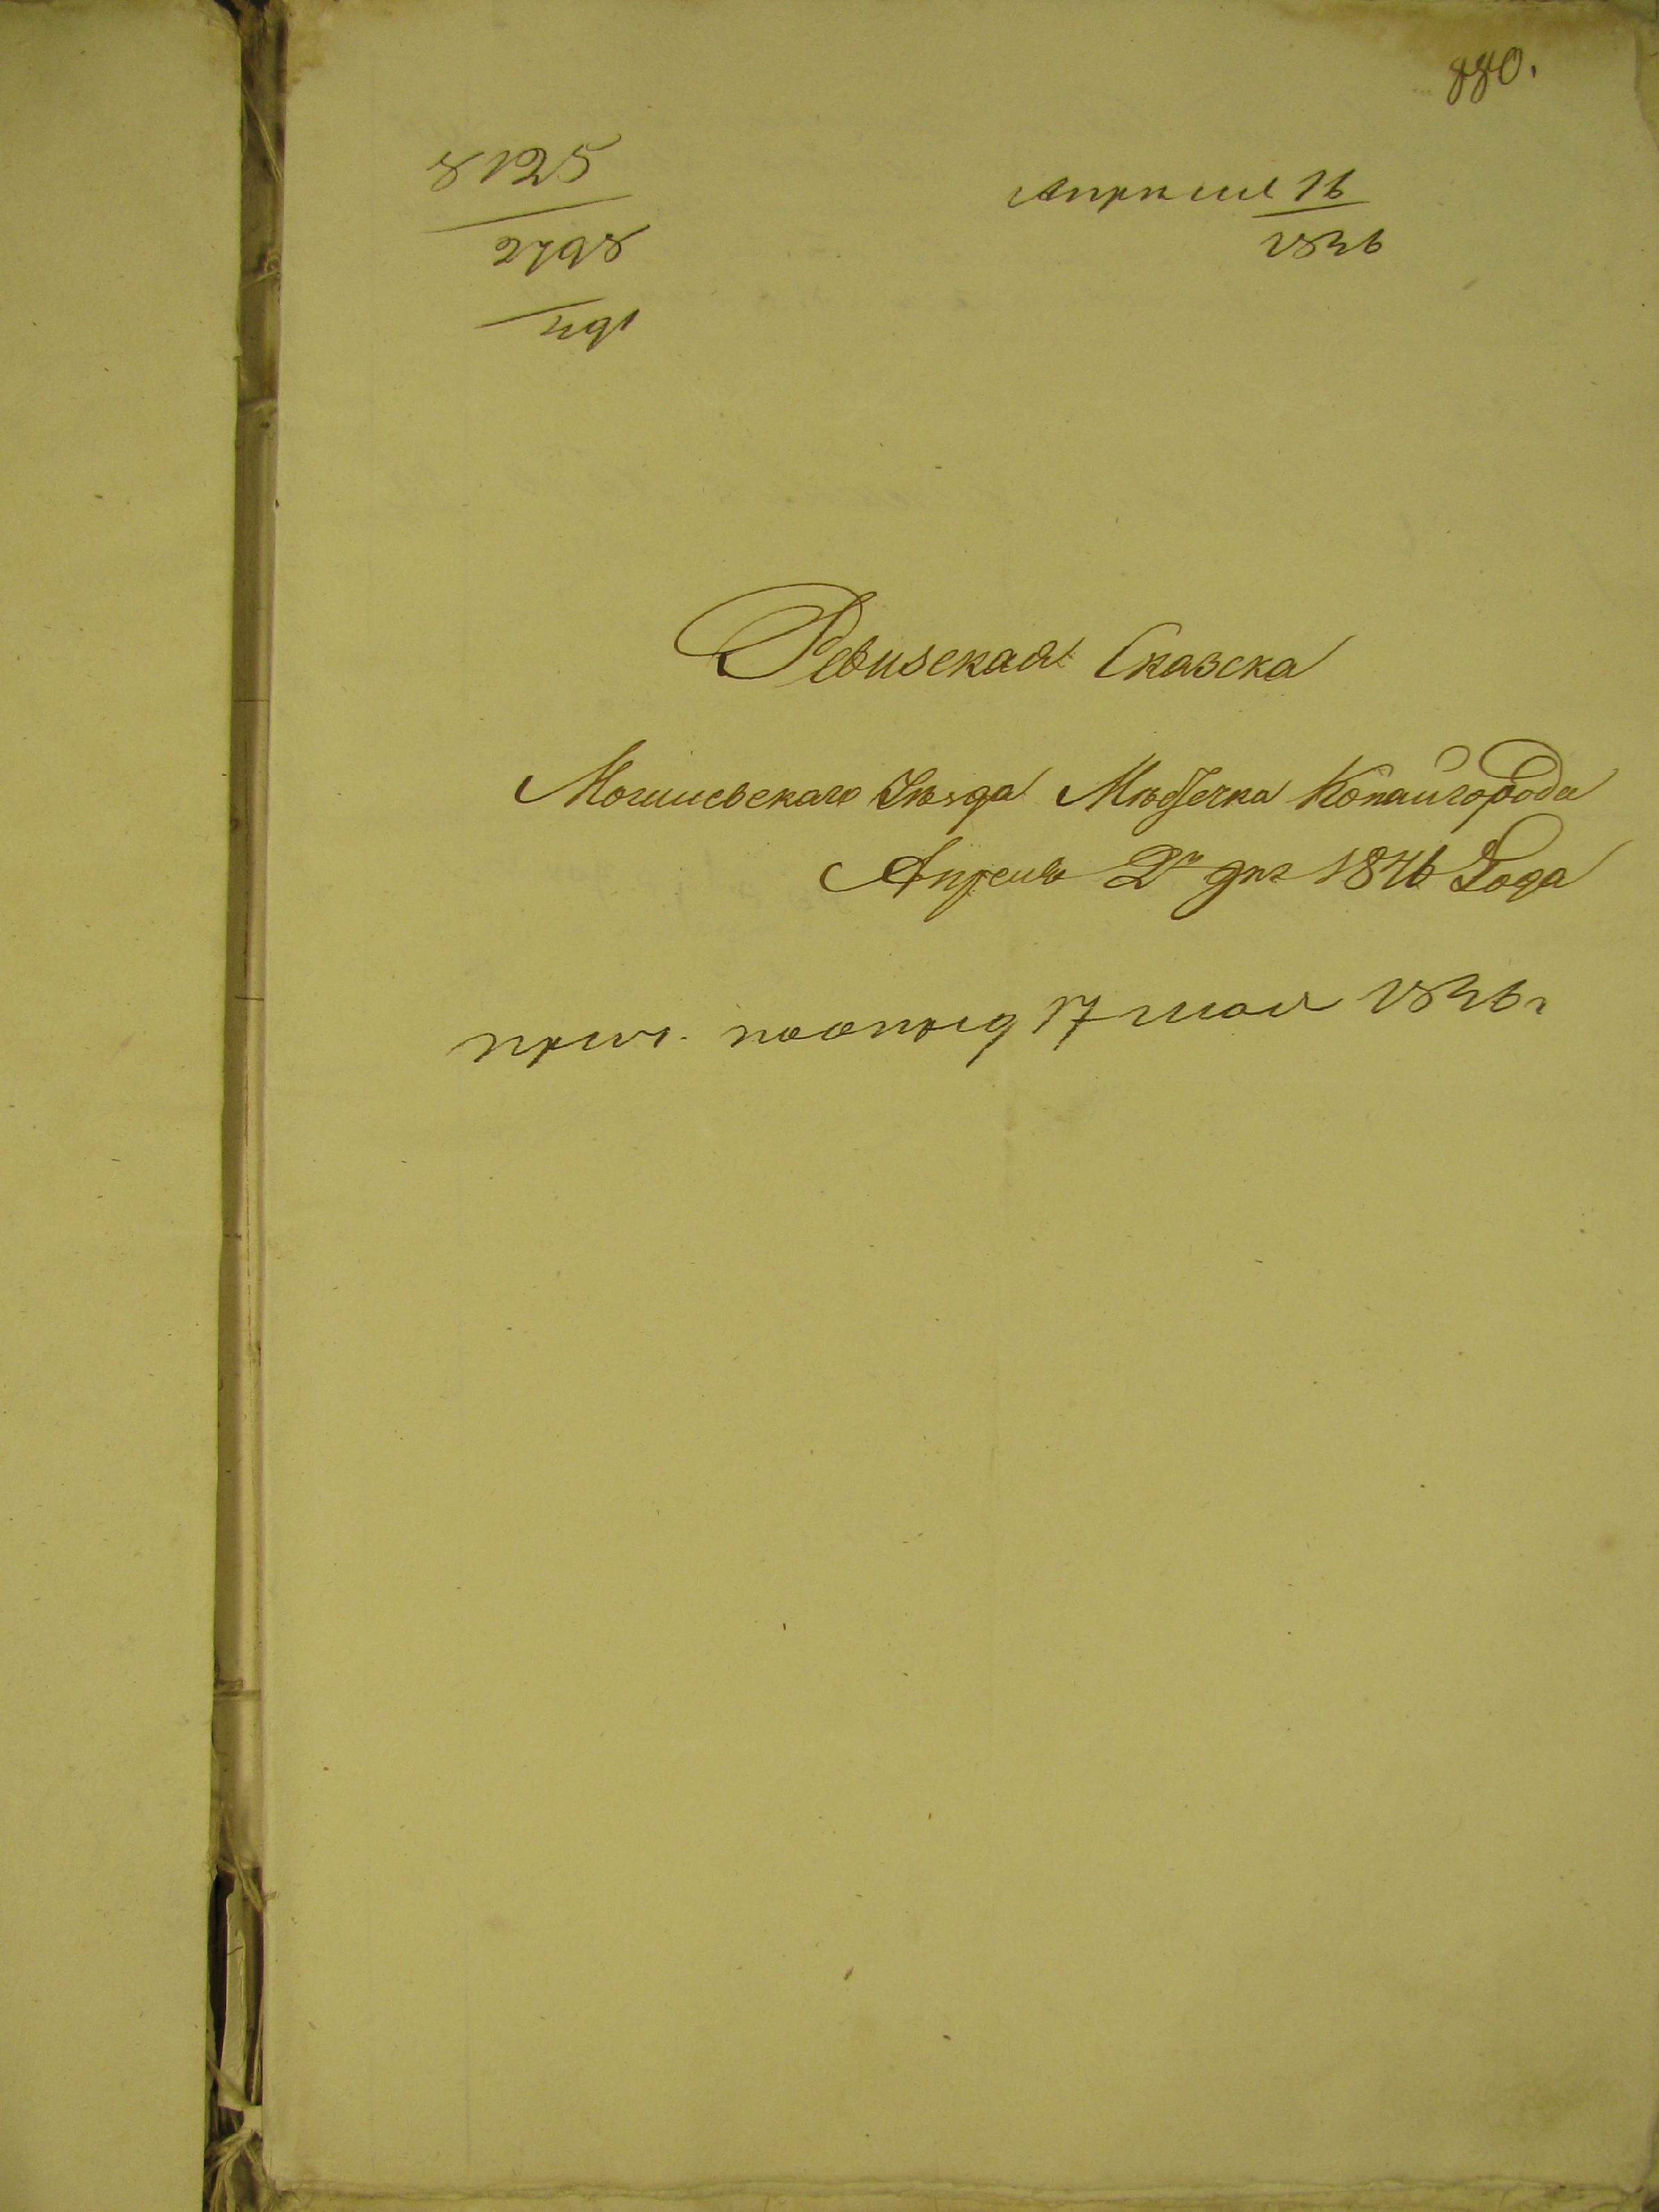 880.
8125
2798
491
Апреля 16
1846
Ревизская Сказска
Могилевскаго Уѣзда Мѣстечка Копайгорода
Апреля 2го дня 1846 Года
17 мая 1846 г